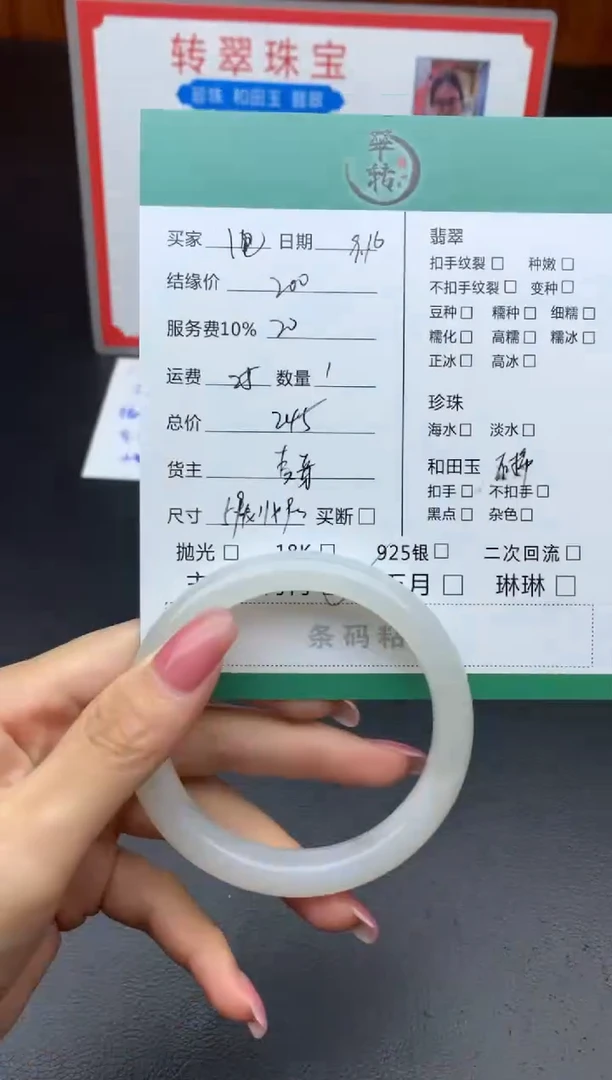 转翠珠宝
珍珠 和田玉 翡翠
翠
转
买家 日期 9.16
结缘价 200
服务费10% 20
运费 25 数量 1
总价 245
货主
尺寸 买断□
翡翠
扣手纹裂□ 种嫩□
不扣手纹裂□ 变种□
豆种□ 糯种□ 细糯□
糯化□ 高糯□ 糯冰□
正冰□ 高冰□
珍珠
海水□ 淡水□
和田玉
扣手□ 不扣手□
黑点□ 杂色□
抛光□ 18K□ 925银□ 二次回流□
月□ 琳琳□
条码粘